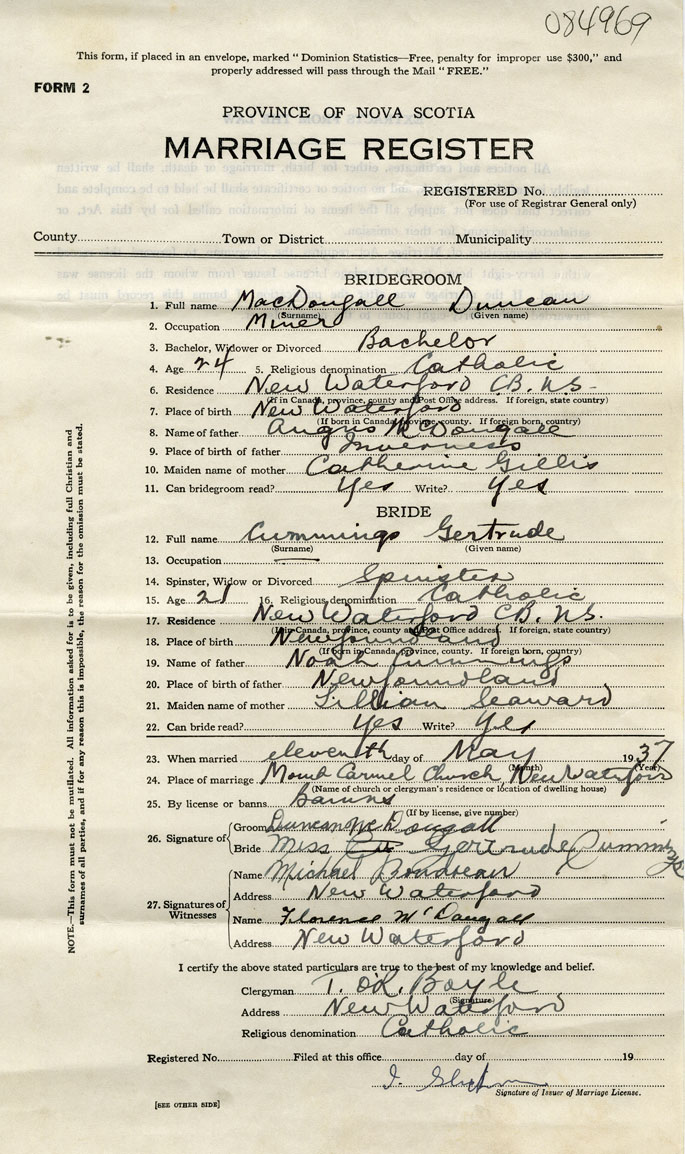 084969
This form, if placed in an envelope, marked "Dominion Statistics—Free, penalty for improper use $300," and
properly addressed will pass through the Mail "FREE."
FORM 2
PROVINCE OF NOVA SCOTIA
MARRIAGE REGISTER
REGISTERED No.
(For use of Registrar General only)
County Town or District Municipality
BRIDEGROOM
1. Full name MacDougall Duncan
(Surname) (Given name)
2. Occupation Miner
3. Bachelor, Widower or Divorced Bachelor
4. Age 24 5. Religious denomination Catholic
6. Residence New Waterford C.B. N.S.
(If in Canada, province, county and Post Office address. If foreign, state country)
7. Place of birth New Waterford
(If born in Canada, province, county. If foreign born, country)
8. Name of father Angus McDougall
9. Place of birth of father Inverness
10. Maiden name of mother Catherine Gillis
11. Can bridegroom read? Yes Write? Yes
BRIDE
12. Full name Cummings Gertrude
(Surname) (Given name)
13. Occupation —
14. Spinster, Widow or Divorced Spinster
15. Age 21 16. Religious denomination Catholic
17. Residence New Waterford C.B. N.S.
(If in Canada, province, county and Post Office address. If foreign, state country)
18. Place of birth Newfoundland
(If born in Canada, province, county. If foreign born, country)
19. Name of father Noah Cummings
20. Place of birth of father Newfoundland
21. Maiden name of mother Lillian Seaward
22. Can bride read? Yes Write? Yes
23. When married eleventh day of May 1937
(Month) (Year)
24. Place of marriage Mount Carmel Church, New Waterford
(Name of church or clergyman's residence or location of dwelling house)
25. By license or banns Banns
(If by license, give number)
26. Signature of
Groom Duncan McDougall
Bride Miss Gertrude Cummings
27. Signatures of Witnesses
Name Michael Boudreau
Address New Waterford
Name Florence McDougall
Address New Waterford
I certify the above stated particulars are true to the best of my knowledge and belief.
Clergyman T. O'R. Boyle
(Signature)
Address New Waterford
Religious denomination Catholic
Registered No. Filed at this office day of 19
Signature of Issuer of Marriage License.
[SEE OTHER SIDE]
NOTE.—This form must not be mutilated. All information asked for is to be given, including full Christian and
surnames of all parties, and if for any reason this is impossible, the reason for the omission must be stated.